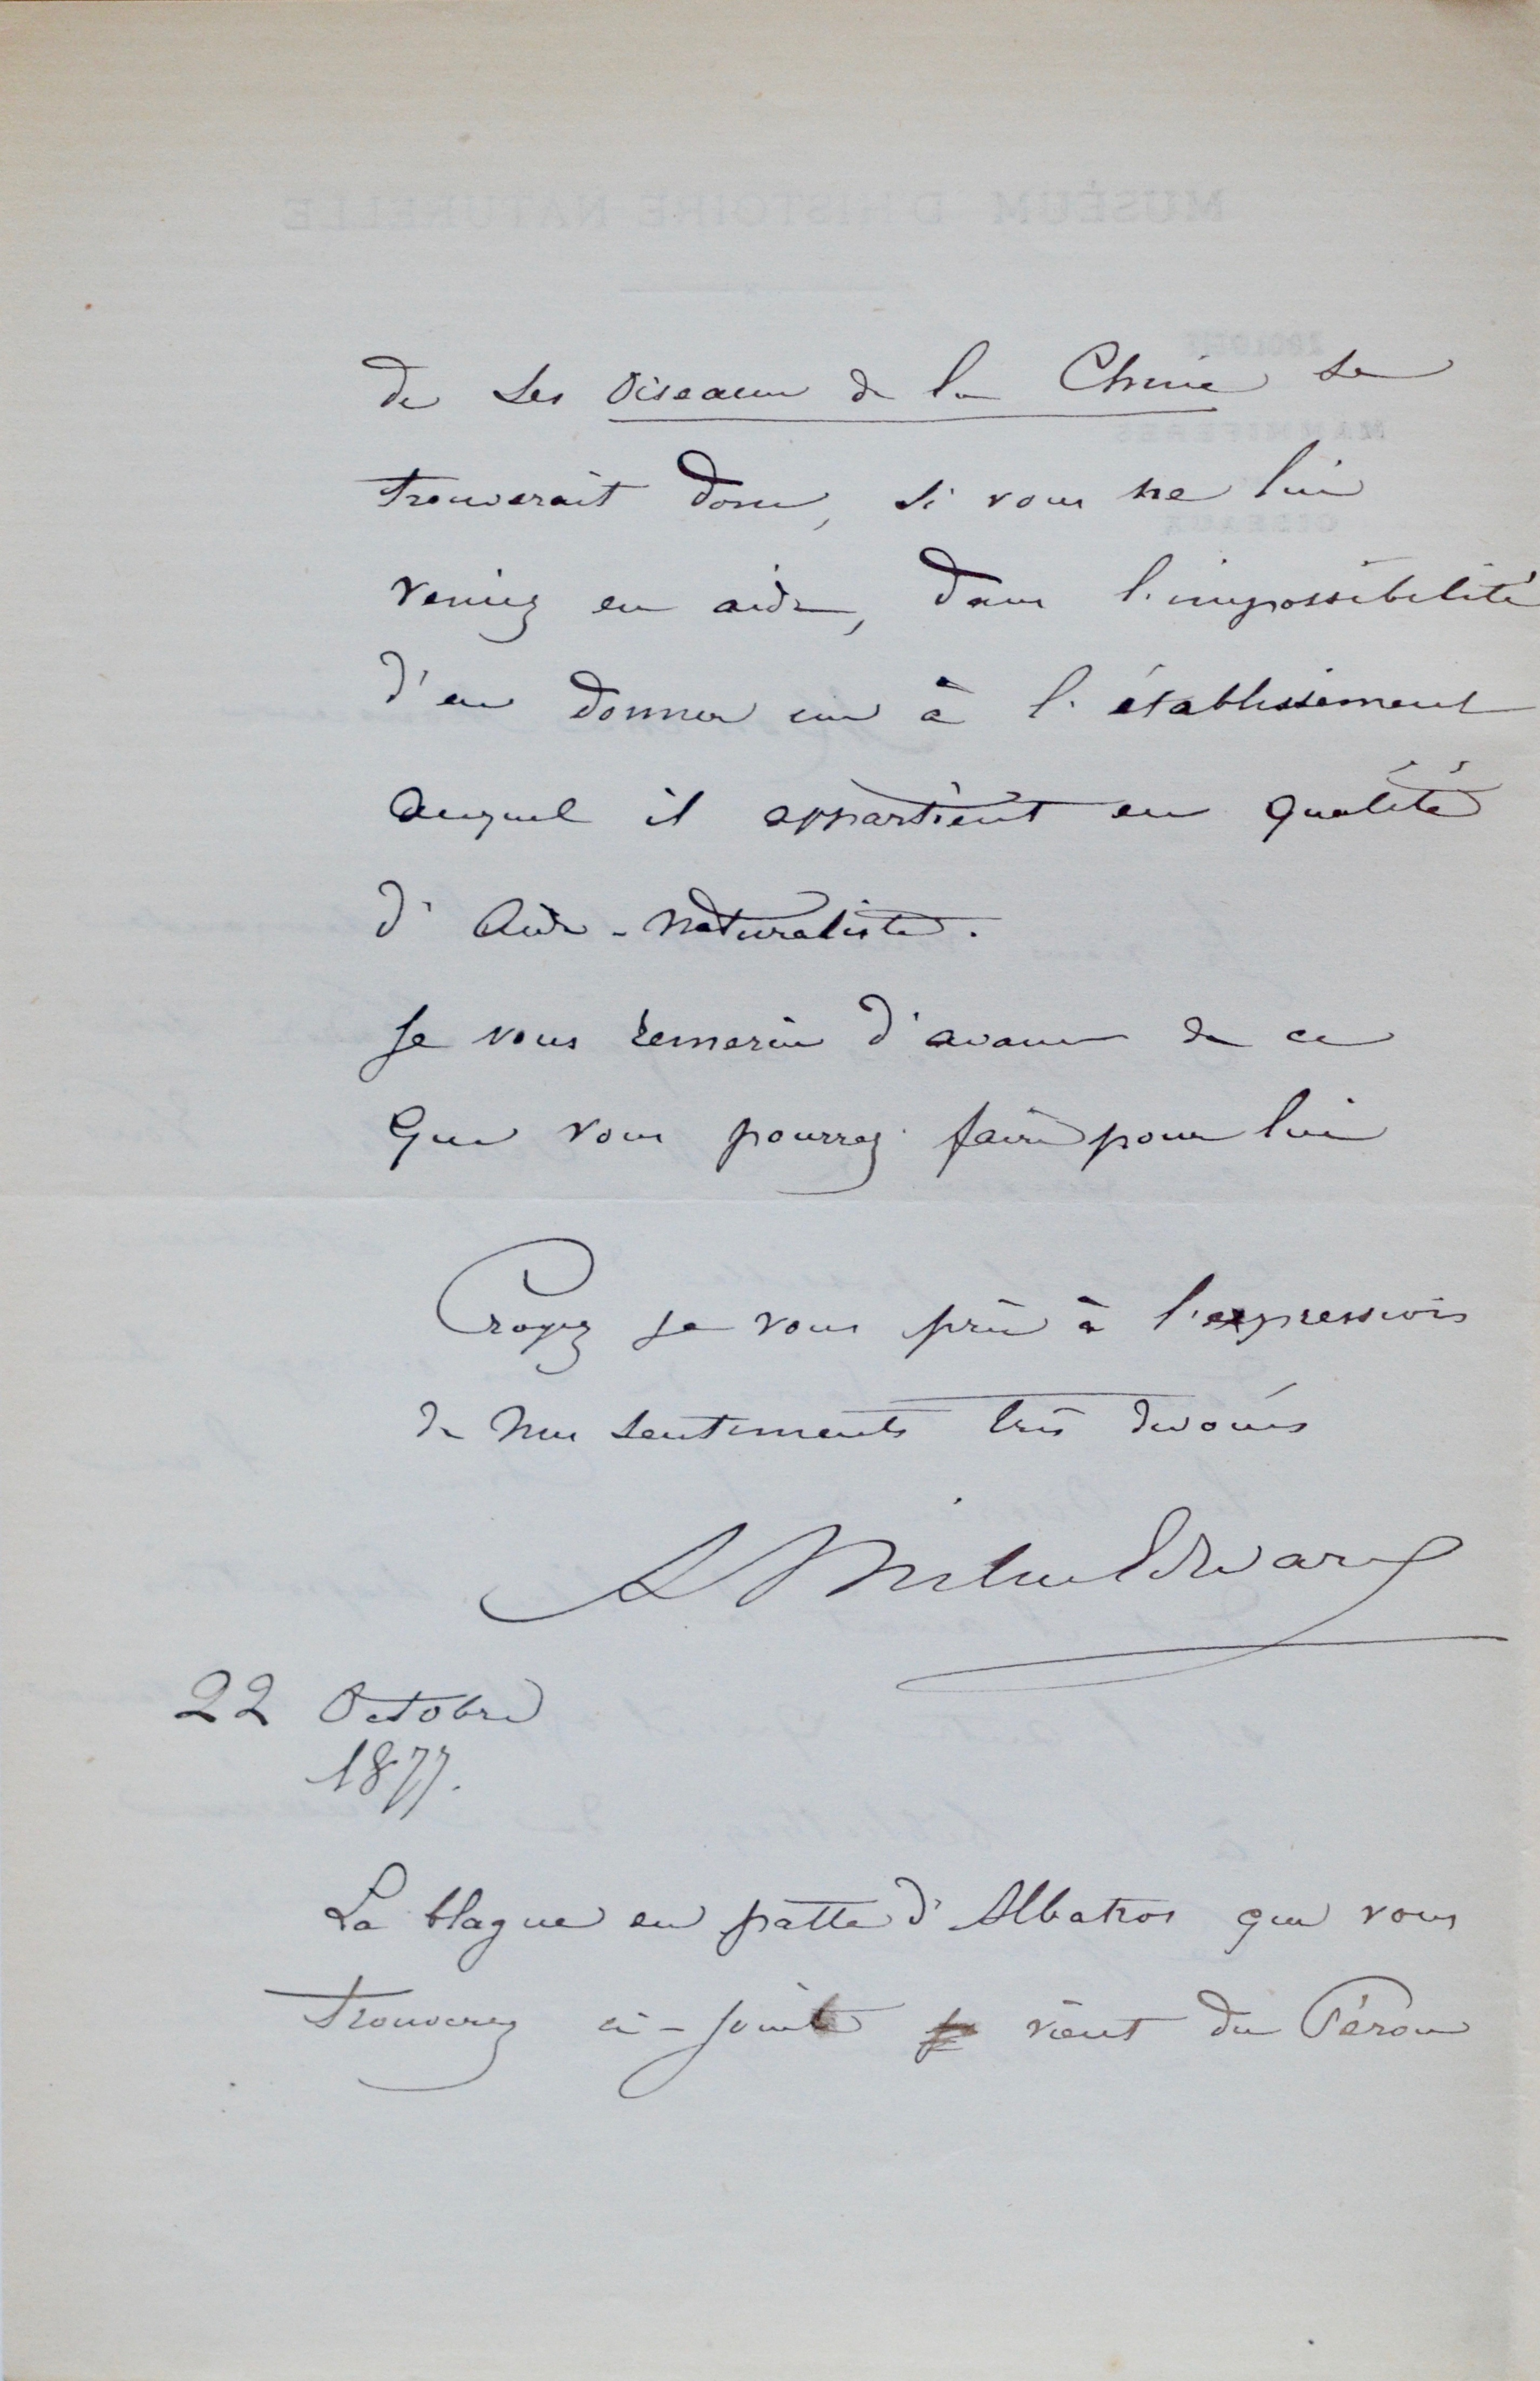 de ses Oiseaux de la Chine se
trouverait donc, si vous ne lui
veniez en aide, dans l'impossibilité
d'en donner un à l'établissement
auquel il appartient en qualité
d'Aide-naturaliste.
Je vous remercie d'avance de ce
que vous pourrez faire pour lui
Croyez je vous prie à l'expression
de mes sentiments très dévoués
A Milne Edwards
22 Octobre
1877.
La blague en patte d'Albatros que vous
trouverez ci-jointe vient du Pérou